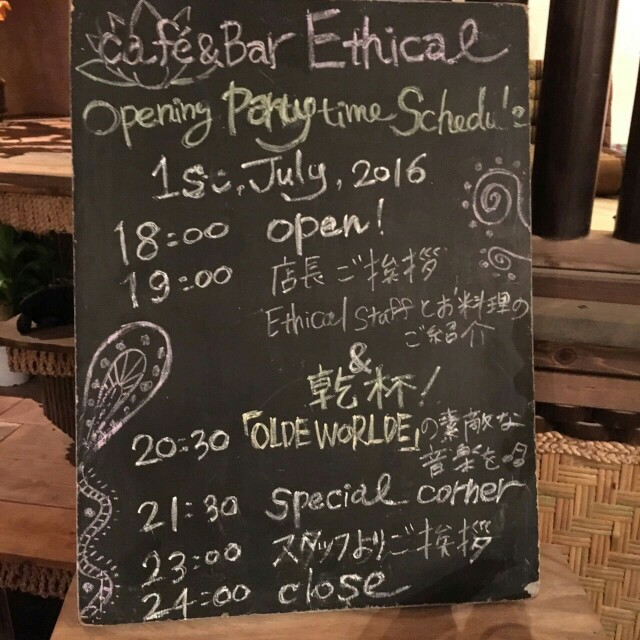 café & Bar Ethical
Opening Party time Schedule
1st, July, 2016
18:00 open!
19:00 店長ご挨拶
Ethical Staffとお料理の
ご紹介
&
乾杯!
20:30 「OLDE WORLDE」の素敵な
音楽を♫
21:30 Special corner
23:00 スタッフよりご挨拶
24:00 close